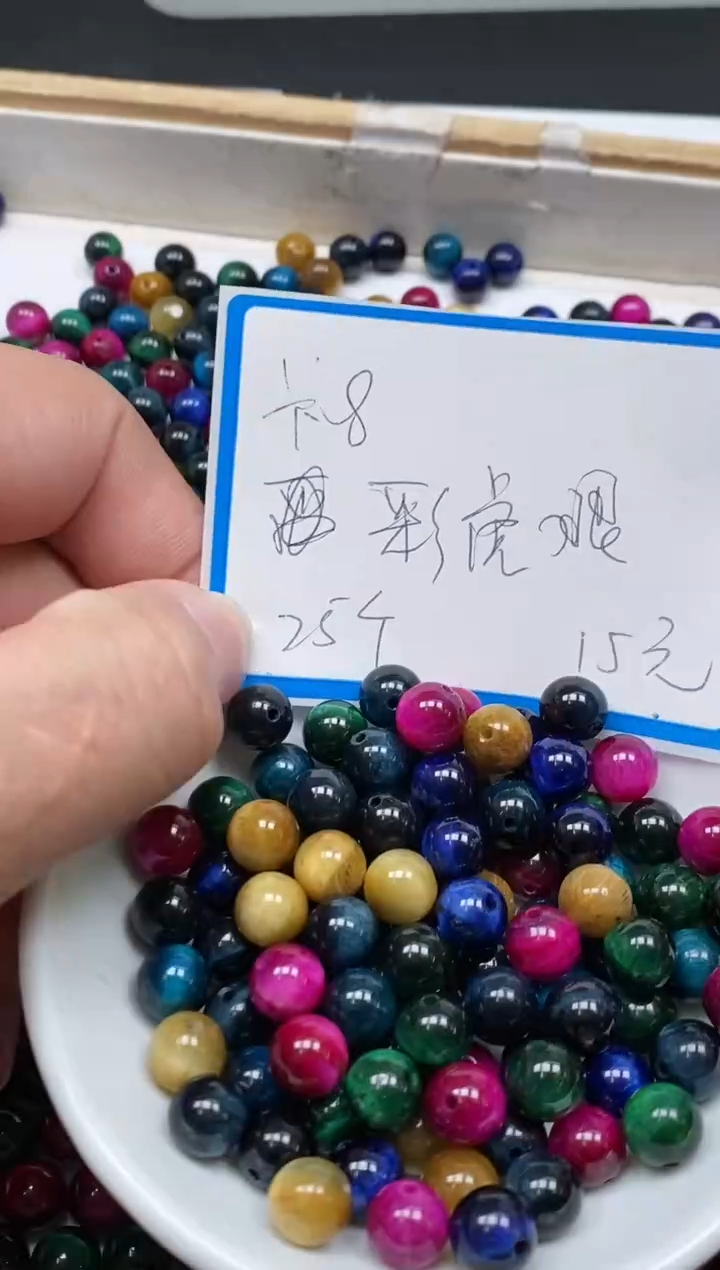 卡8
彩虎眼
25个
15元